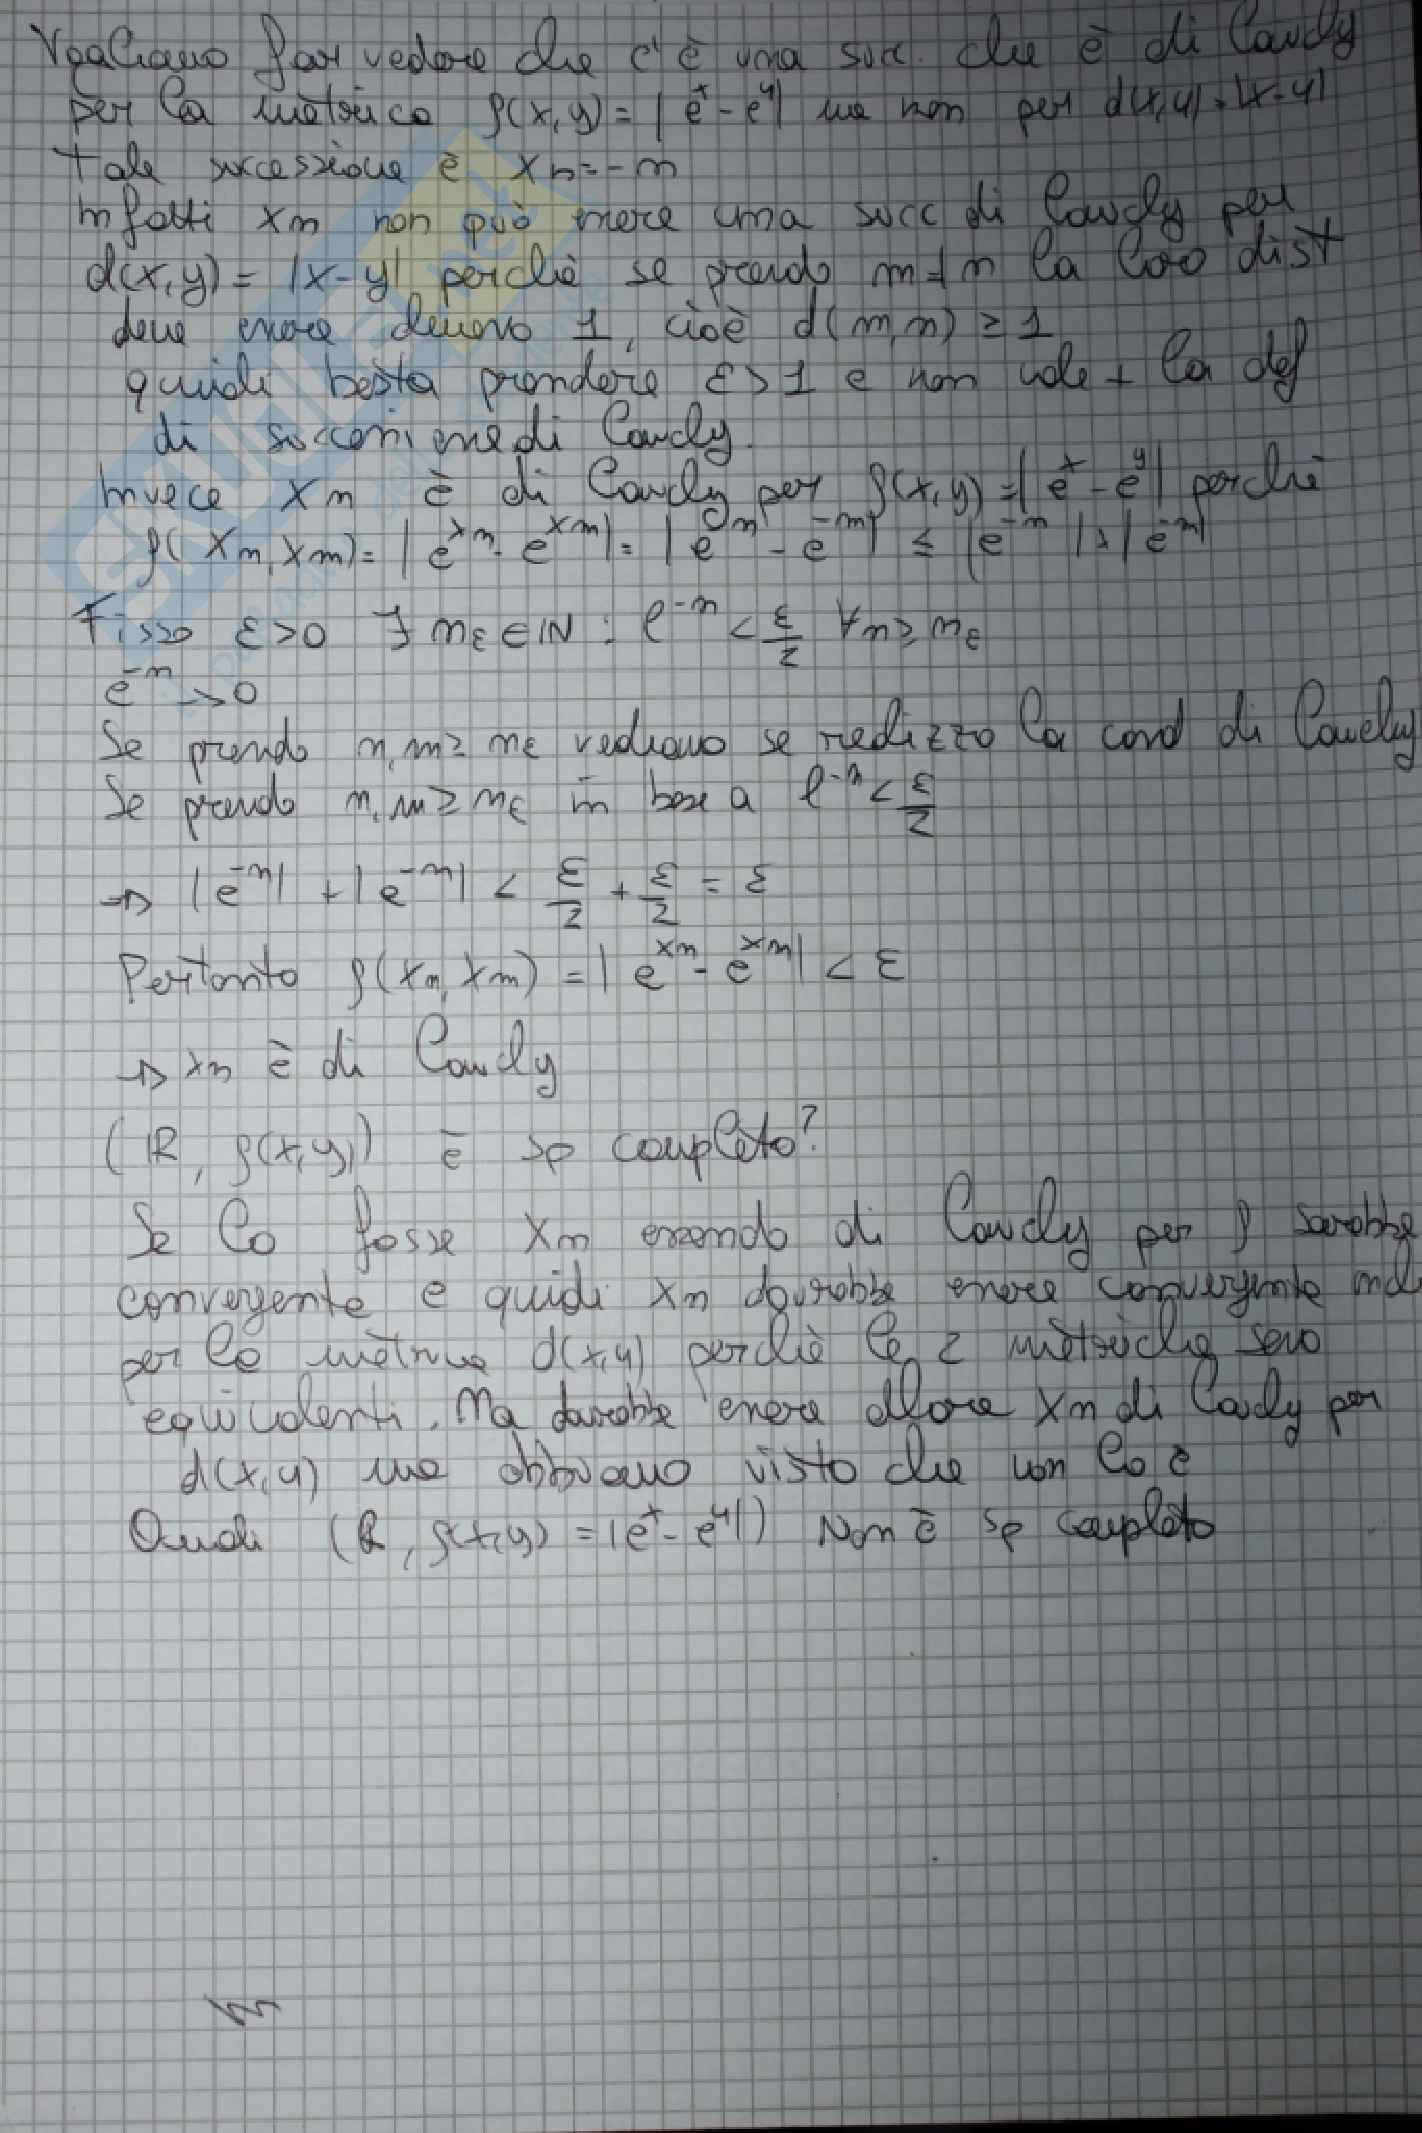 Vogliamo far vedere che c'è una succ. che è di Cauchy
per la metrica ρ(x,y) = |e^x - e^y| ma non per d(x,y) = |x-y|
tale successione è xn = -n
infatti xn non può essere una succ di Cauchy per
d(x,y) = |x-y| perchè se prendo m≠n la loro dist
deve essere almeno 1, cioè d(m,n) ≥ 1
quindi basta prendere ε>1 e non vale + la def
di successione di Cauchy.
Invece xn è di Cauchy per ρ(x,y) = |e^x - e^y| perchè
ρ(xn, xm) = |e^xn - e^xm| = |e^-n - e^-m| ≤ |e^-n| + |e^-m|
Fisso ε>0 ∃ nε ∈ ℕ : e^-n < ε/2 ∀n ≥ nε
e^-n → 0
Se prendo n,m ≥ nε vediamo se realizzo la cond di Cauchy
Se prendo n,m ≥ nε in base a e^-n < ε/2
→ |e^-n| + |e^-m| < ε/2 + ε/2 = ε
Pertanto ρ(xn, xm) = |e^xn - e^xm| < ε
→ xn è di Cauchy
(ℝ, ρ(x,y)) è sp completo?
Se lo fosse xn essendo di Cauchy per ρ sarebbe
convergente e quidi xn dovrebbe essere convergente
per la metrica d(x,y) perchè le 2 metriche sono
equivalenti. Ma dovrebbe essere allora xn di Cauchy per
d(x,y) ma abbiamo visto che non lo è
Quindi (ℝ, ρ(x,y) = |e^x - e^y|) Non è sp completo
SKUOLA.net